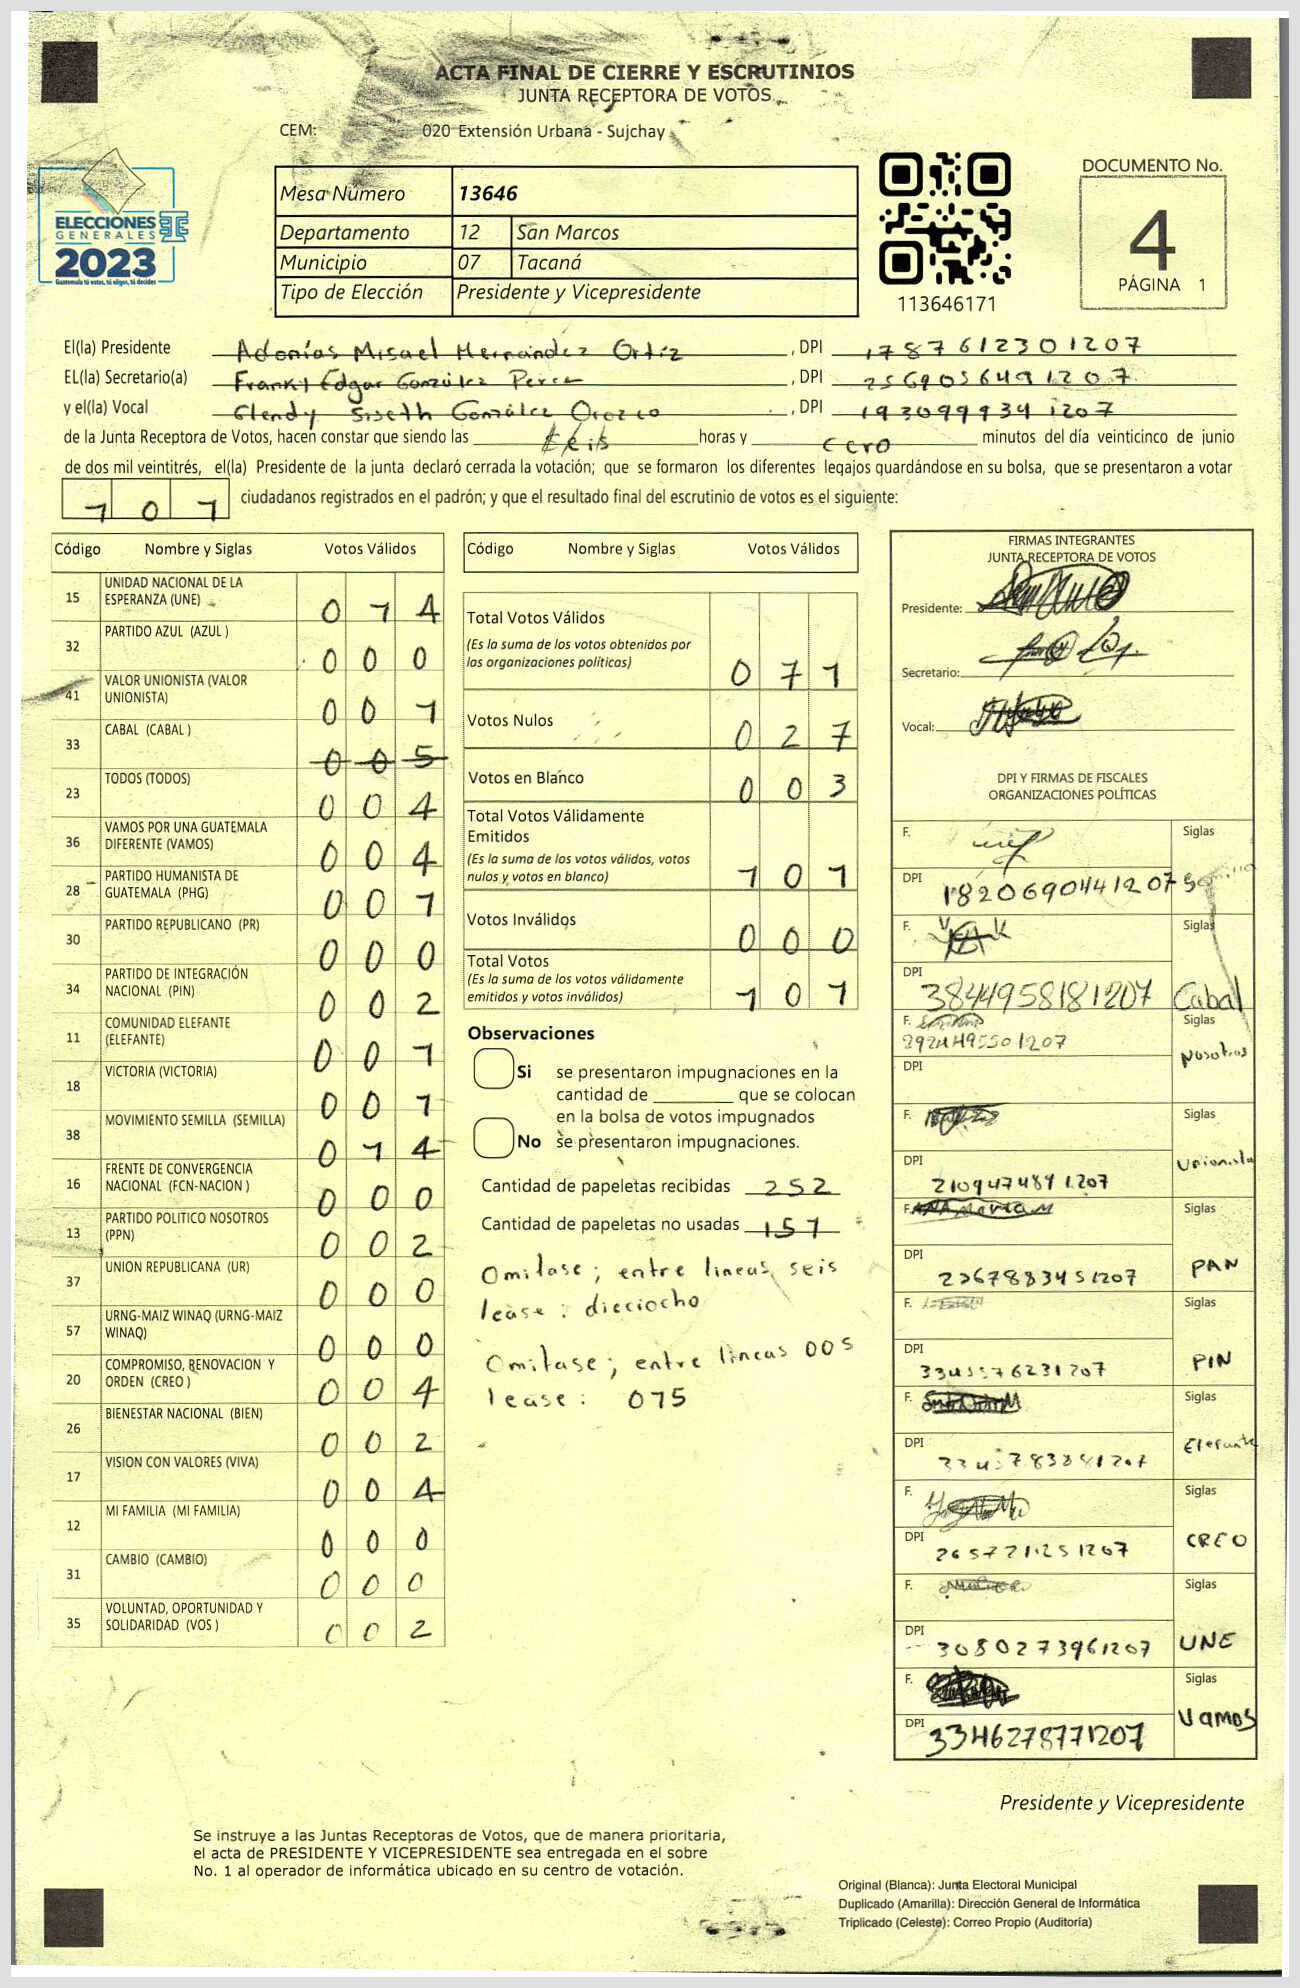 ACTA FINAL DE CIERRE Y ESCRUTINIOS
JUNTA RECEPTORA DE VOTOS
CEM: 020 Extensión Urbana - Sujchay
ELECCIONES
GENERALES
2023
Guatemala tú votas, tú eliges, tú decides
Mesa Número 13646
Departamento 12 San Marcos
Municipio 07 Tacaná
Tipo de Elección Presidente y Vicepresidente
113646171
DOCUMENTO No.
4
PÁGINA 1
El(la) Presidente Adonías Misael Hernández Ortíz , DPI 1787612301207
EL(la) Secretario(a) Edgar González Perez , DPI 2569056491207
y el(la) Vocal Glendy Siseth González Orozco , DPI 1930999341207
de la Junta Receptora de Votos, hacen constar que siendo las seis horas y cero minutos del día veinticinco de junio
de dos mil veintitrés, el(la) Presidente de la junta declaró cerrada la votación; que se formaron los diferentes legajos guardándose en su bolsa, que se presentaron a votar
101 ciudadanos registrados en el padrón; y que el resultado final del escrutinio de votos es el siguiente:
Código Nombre y Siglas Votos Válidos
15 UNIDAD NACIONAL DE LA ESPERANZA (UNE) 014
32 PARTIDO AZUL (AZUL ) 000
41 VALOR UNIONISTA (VALOR UNIONISTA) 001
33 CABAL (CABAL ) 005
23 TODOS (TODOS) 004
36 VAMOS POR UNA GUATEMALA DIFERENTE (VAMOS) 004
28 PARTIDO HUMANISTA DE GUATEMALA (PHG) 001
30 PARTIDO REPUBLICANO (PR) 000
34 PARTIDO DE INTEGRACIÓN NACIONAL (PIN) 002
11 COMUNIDAD ELEFANTE (ELEFANTE) 001
18 VICTORIA (VICTORIA) 001
38 MOVIMIENTO SEMILLA (SEMILLA) 014
16 FRENTE DE CONVERGENCIA NACIONAL (FCN-NACION ) 000
13 PARTIDO POLITICO NOSOTROS (PPN) 002
37 UNION REPUBLICANA (UR) 000
57 URNG-MAIZ WINAQ (URNG-MAIZ WINAQ) 000
20 COMPROMISO, RENOVACION Y ORDEN (CREO ) 004
26 BIENESTAR NACIONAL (BIEN) 002
17 VISION CON VALORES (VIVA) 004
12 MI FAMILIA (MI FAMILIA) 000
31 CAMBIO (CAMBIO) 000
35 VOLUNTAD, OPORTUNIDAD Y SOLIDARIDAD (VOS ) 002
Código Nombre y Siglas Votos Válidos
Total Votos Válidos 071
(Es la suma de los votos obtenidos por
las organizaciones políticas)
Votos Nulos 027
Votos en Blanco 003
Total Votos Válidamente
Emitidos
(Es la suma de los votos válidos, votos
nulos y votos en blanco) 101
Votos Inválidos 000
Total Votos
(Es la suma de los votos válidamente
emitidos y votos inválidos) 101
Observaciones
Si se presentaron impugnaciones en la
cantidad de ________ que se colocan
en la bolsa de votos impugnados
No se presentaron impugnaciones.
Cantidad de papeletas recibidas 252
Cantidad de papeletas no usadas 151
Omitase; entre lineas seis
lease: dieciocho
Omitase; entre lineas 005
lease: 015
FIRMAS INTEGRANTES
JUNTA RECEPTORA DE VOTOS
Presidente:
Secretario:
Vocal:
DPI Y FIRMAS DE FISCALES
ORGANIZACIONES POLÍTICAS
F. Siglas
DPI 1820690441207
F. Siglas
DPI 3844958181207 Cabal
F. Siglas
DPI Nosotros
F. Siglas
DPI 2109474891207 Unionista
F. Siglas
DPI 2367883451207 PAN
F. Siglas
DPI PIN
F. Siglas
DPI Elefante
F. Siglas
DPI CREO
F. Siglas
DPI 3080273961207 UNE
F. Siglas
DPI 3346278771207 Vamos
Presidente y Vicepresidente
Se instruye a las Juntas Receptoras de Votos, que de manera prioritaria,
el acta de PRESIDENTE Y VICEPRESIDENTE sea entregada en el sobre
No. 1 al operador de informática ubicado en su centro de votación.
Original (Blanca): Junta Electoral Municipal
Duplicado (Amarilla): Dirección General de Informática
Triplicado (Celeste): Correo Propio (Auditoría)